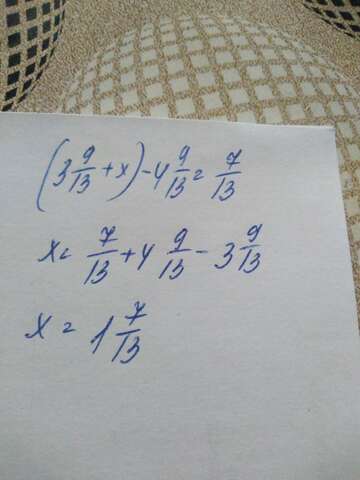 (3 9/13 + x) - 4 9/13 = 7/13
x = 7/13 + 4 9/13 - 3 9/13
x = 1 7/13